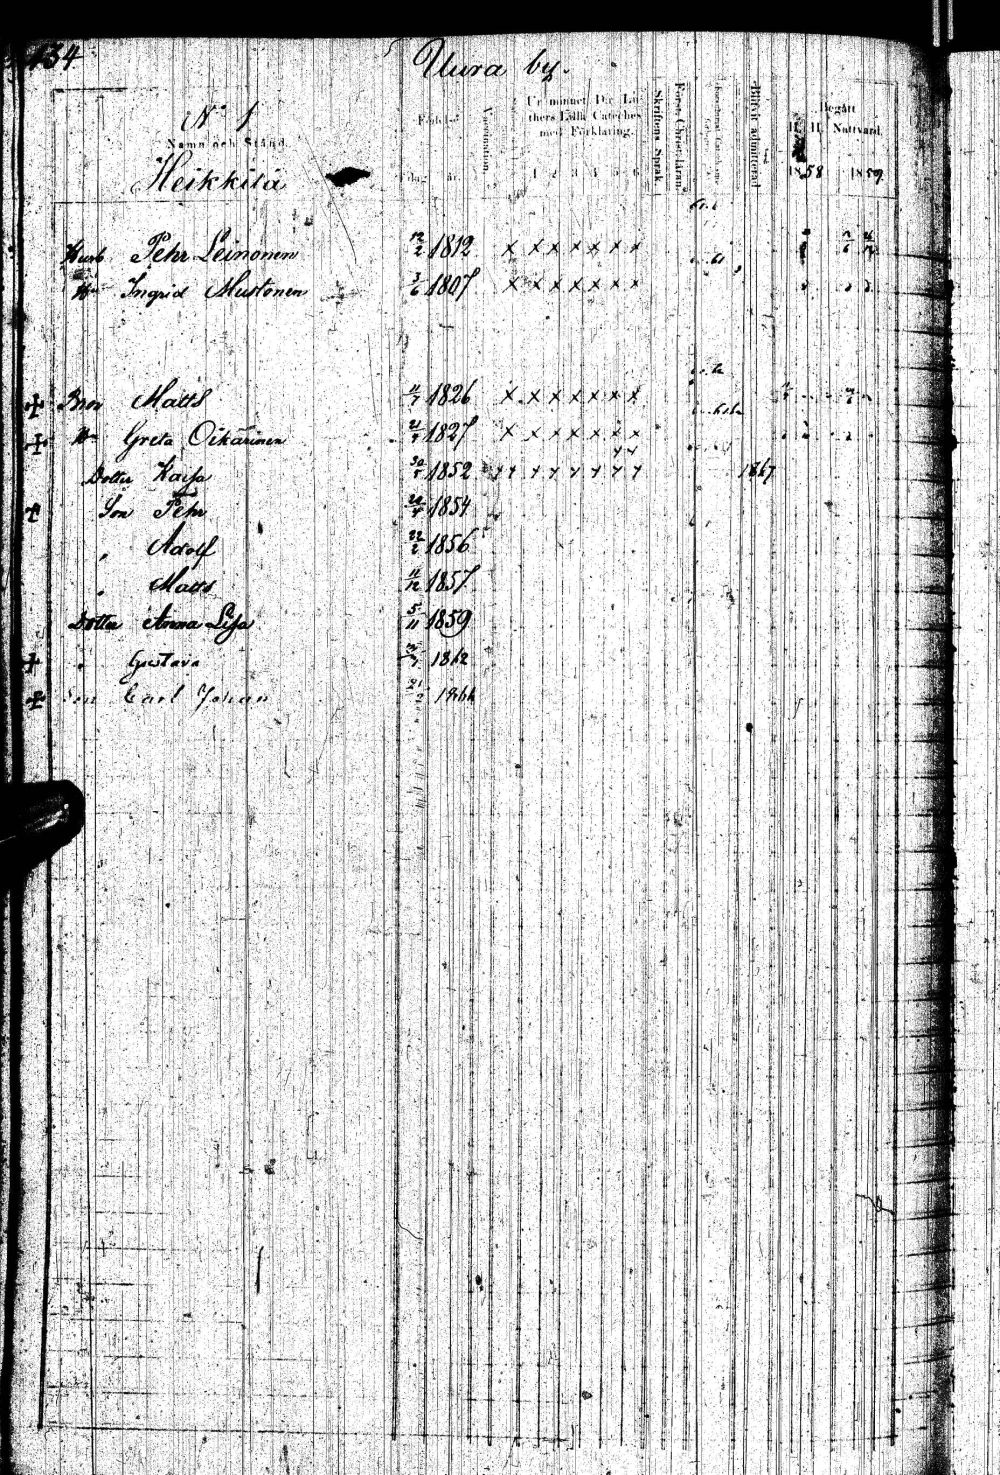 134
Uura by.
N° 1
Namn och Stånd.
Heikkilä
Född
dag år.
Innanläsning.
Ur minnet D:r Lu-
thers Lilla Cateches
med Förklaring.
1 2 3 4 5 6
Skriftens Språk
Först. Christ. läran
Blifvit admitterad
Begått
H. H. Nattvard.
1858 1859
Husb. Pehr Leinonen 12/2 1812 x x x x x x x
Hu Ingrid Mustonen 3/6 1807 x x x x x x x
Bror Matts 11/7 1826 x x x x x x x
Hu Greta Oikarinen 21/4 1827 x x x x x x x
Dotter Kaisa 30/5 1852 1867
Son Pehr 1854
" Adolf 22/2 1856
" Matts 11/12 1857
Dotter Anna Lisa 5/11 1859
" Gustava 1862
Son Carl Johan 1866